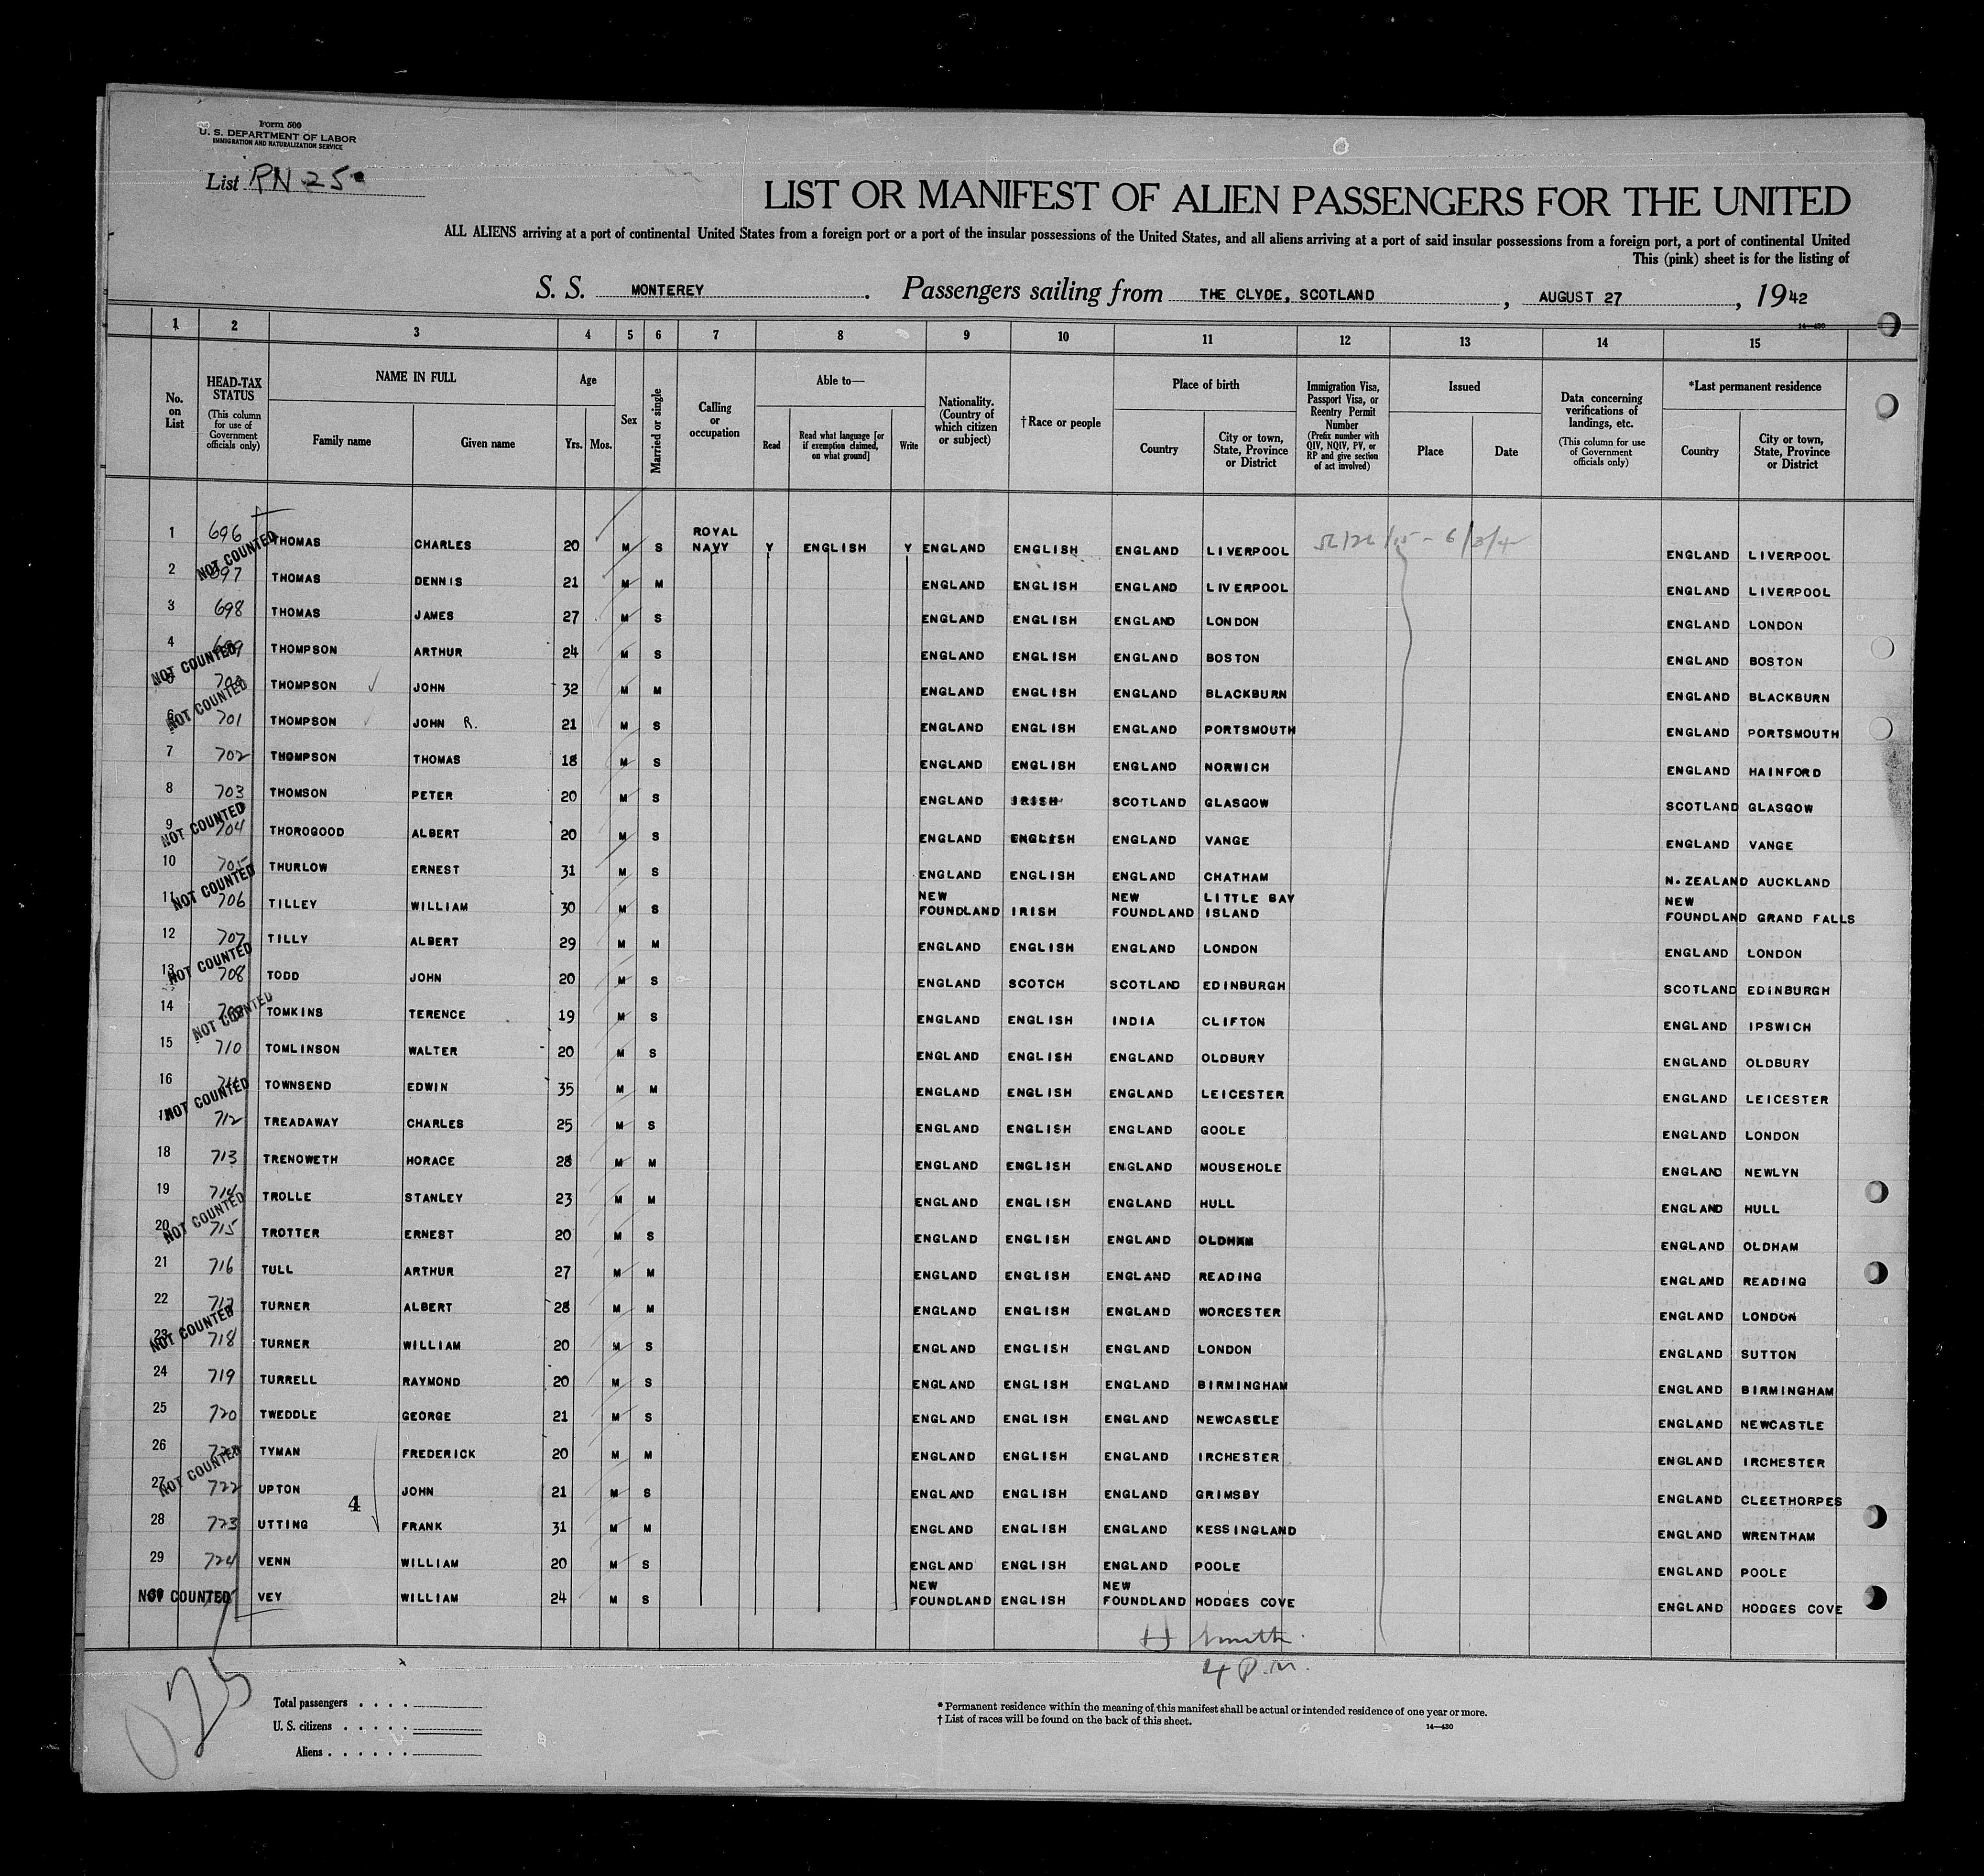 Form 500
U. S. DEPARTMENT OF LABOR
IMMIGRATION AND NATURALIZATION SERVICE
List RN 25
LIST OR MANIFEST OF ALIEN PASSENGERS FOR THE UNITED
ALL ALIENS arriving at a port of continental United States from a foreign port or a port of the insular possessions of the United States, and all aliens arriving at a port of said insular possessions from a foreign port, a port of continental United
This (pink) sheet is for the listing of
S. S. MONTEREY. Passengers sailing from THE CLYDE, SCOTLAND, AUGUST 27, 1942
14—430
1 2 3 4 5 6 7 8 9 10 11 12 13 14 15
No. on List
HEAD-TAX STATUS (This column for use of Government officials only)
NAME IN FULL
Family name Given name
Age
Yrs. Mos.
Sex
Married or single
Calling or occupation
Able to—
Read
Read what language [or if exemption claimed, on what ground]
Write
Nationality. (Country of which citizen or subject)
†Race or people
Place of birth
Country
City or town, State, Province or District
Immigration Visa, Passport Visa, or Reentry Permit Number (Prefix number with QIV, NQIV, PV, or RP and give section of act involved)
Issued
Place Date
Data concerning verifications of landings, etc. (This column for use of Government officials only)
*Last permanent residence
Country
City or town, State, Province or District
1 696 THOMAS CHARLES 20 M S ROYAL NAVY Y ENGLISH Y ENGLAND ENGLISH ENGLAND LIVERPOOL ENGLAND LIVERPOOL
NOT COUNTED
2 697 THOMAS DENNIS 21 M M ENGLAND ENGLISH ENGLAND LIVERPOOL ENGLAND LIVERPOOL
3 698 THOMAS JAMES 27 M S ENGLAND ENGLISH ENGLAND LONDON ENGLAND LONDON
4 699 THOMPSON ARTHUR 24 M S ENGLAND ENGLISH ENGLAND BOSTON ENGLAND BOSTON
NOT COUNTED
5 700 THOMPSON JOHN 32 M M ENGLAND ENGLISH ENGLAND BLACKBURN ENGLAND BLACKBURN
NOT COUNTED
6 701 THOMPSON JOHN R. 21 M S ENGLAND ENGLISH ENGLAND PORTSMOUTH ENGLAND PORTSMOUTH
7 702 THOMPSON THOMAS 18 M S ENGLAND ENGLISH ENGLAND NORWICH ENGLAND HAINFORD
8 703 THOMSON PETER 20 M S ENGLAND IRISH SCOTLAND GLASGOW SCOTLAND GLASGOW
NOT COUNTED
9 704 THOROGOOD ALBERT 20 M S ENGLAND ENGLISH ENGLAND VANGE ENGLAND VANGE
10 705 THURLOW ERNEST 31 M S ENGLAND ENGLISH ENGLAND CHATHAM N. ZEALAND AUCKLAND
NOT COUNTED
11 706 TILLEY WILLIAM 30 M S NEW FOUNDLAND IRISH NEW FOUNDLAND LITTLE BAY ISLAND NEW FOUNDLAND GRAND FALLS
12 707 TILLY ALBERT 29 M M ENGLAND ENGLISH ENGLAND LONDON ENGLAND LONDON
NOT COUNTED
13 708 TODD JOHN 20 M S ENGLAND SCOTCH SCOTLAND EDINBURGH SCOTLAND EDINBURGH
NOT COUNTED
14 709 TOMKINS TERENCE 19 M S ENGLAND ENGLISH INDIA CLIFTON ENGLAND IPSWICH
15 710 TOMLINSON WALTER 20 M S ENGLAND ENGLISH ENGLAND OLDBURY ENGLAND OLDBURY
16 711 TOWNSEND EDWIN 35 M M ENGLAND ENGLISH ENGLAND LEICESTER ENGLAND LEICESTER
NOT COUNTED
17 712 TREADAWAY CHARLES 25 M S ENGLAND ENGLISH ENGLAND GOOLE ENGLAND LONDON
18 713 TRENOWETH HORACE 28 M M ENGLAND ENGLISH ENGLAND MOUSEHOLE ENGLAND NEWLYN
19 714 TROLLE STANLEY 23 M M ENGLAND ENGLISH ENGLAND HULL ENGLAND HULL
NOT COUNTED
20 715 TROTTER ERNEST 20 M S ENGLAND ENGLISH ENGLAND OLDHAM ENGLAND OLDHAM
21 716 TULL ARTHUR 27 M M ENGLAND ENGLISH ENGLAND READING ENGLAND READING
22 717 TURNER ALBERT 28 M M ENGLAND ENGLISH ENGLAND WORCESTER ENGLAND LONDON
NOT COUNTED
23 718 TURNER WILLIAM 20 M S ENGLAND ENGLISH ENGLAND LONDON ENGLAND SUTTON
24 719 TURRELL RAYMOND 20 M S ENGLAND ENGLISH ENGLAND BIRMINGHAM ENGLAND BIRMINGHAM
25 720 TWEDDLE GEORGE 21 M S ENGLAND ENGLISH ENGLAND NEWCASLE ENGLAND NEWCASTLE
26 721 TYMAN FREDERICK 20 M M ENGLAND ENGLISH ENGLAND IRCHESTER ENGLAND IRCHESTER
NOT COUNTED
27 722 UPTON 4 JOHN 21 M S ENGLAND ENGLISH ENGLAND GRIMSBY ENGLAND CLEETHORPES
28 723 UTTING FRANK 31 M M ENGLAND ENGLISH ENGLAND KESSINGLAND ENGLAND WRENTHAM
29 724 VENN WILLIAM 20 M S ENGLAND ENGLISH ENGLAND POOLE ENGLAND POOLE
30 NOT COUNTED VEY WILLIAM 24 M S NEW FOUNDLAND ENGLISH NEW FOUNDLAND HODGES COVE ENGLAND HODGES COVE
H Smith
4 P.M.
Total passengers . . . .
U. S. citizens . . . . .
Aliens . . . . . .
* Permanent residence within the meaning of this manifest shall be actual or intended residence of one year or more.
† List of races will be found on the back of this sheet.
14—430